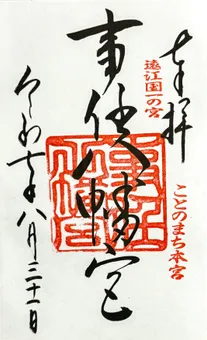 奉拝
遠江國一の宮
ことのまち本宮
事任八幡宮
令和 年八月三十一日